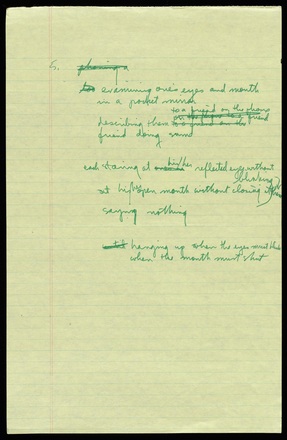 5. phoning a
to examining one's eyes and mouth
in a pocket mirror
to a friend on the phone
describing them to a friend
friend doing same
each staring at his/her reflected eyes without blinking
at his/her open mouth without closing it
saying nothing
hanging up when the eyes must blink
when the mouth must shut